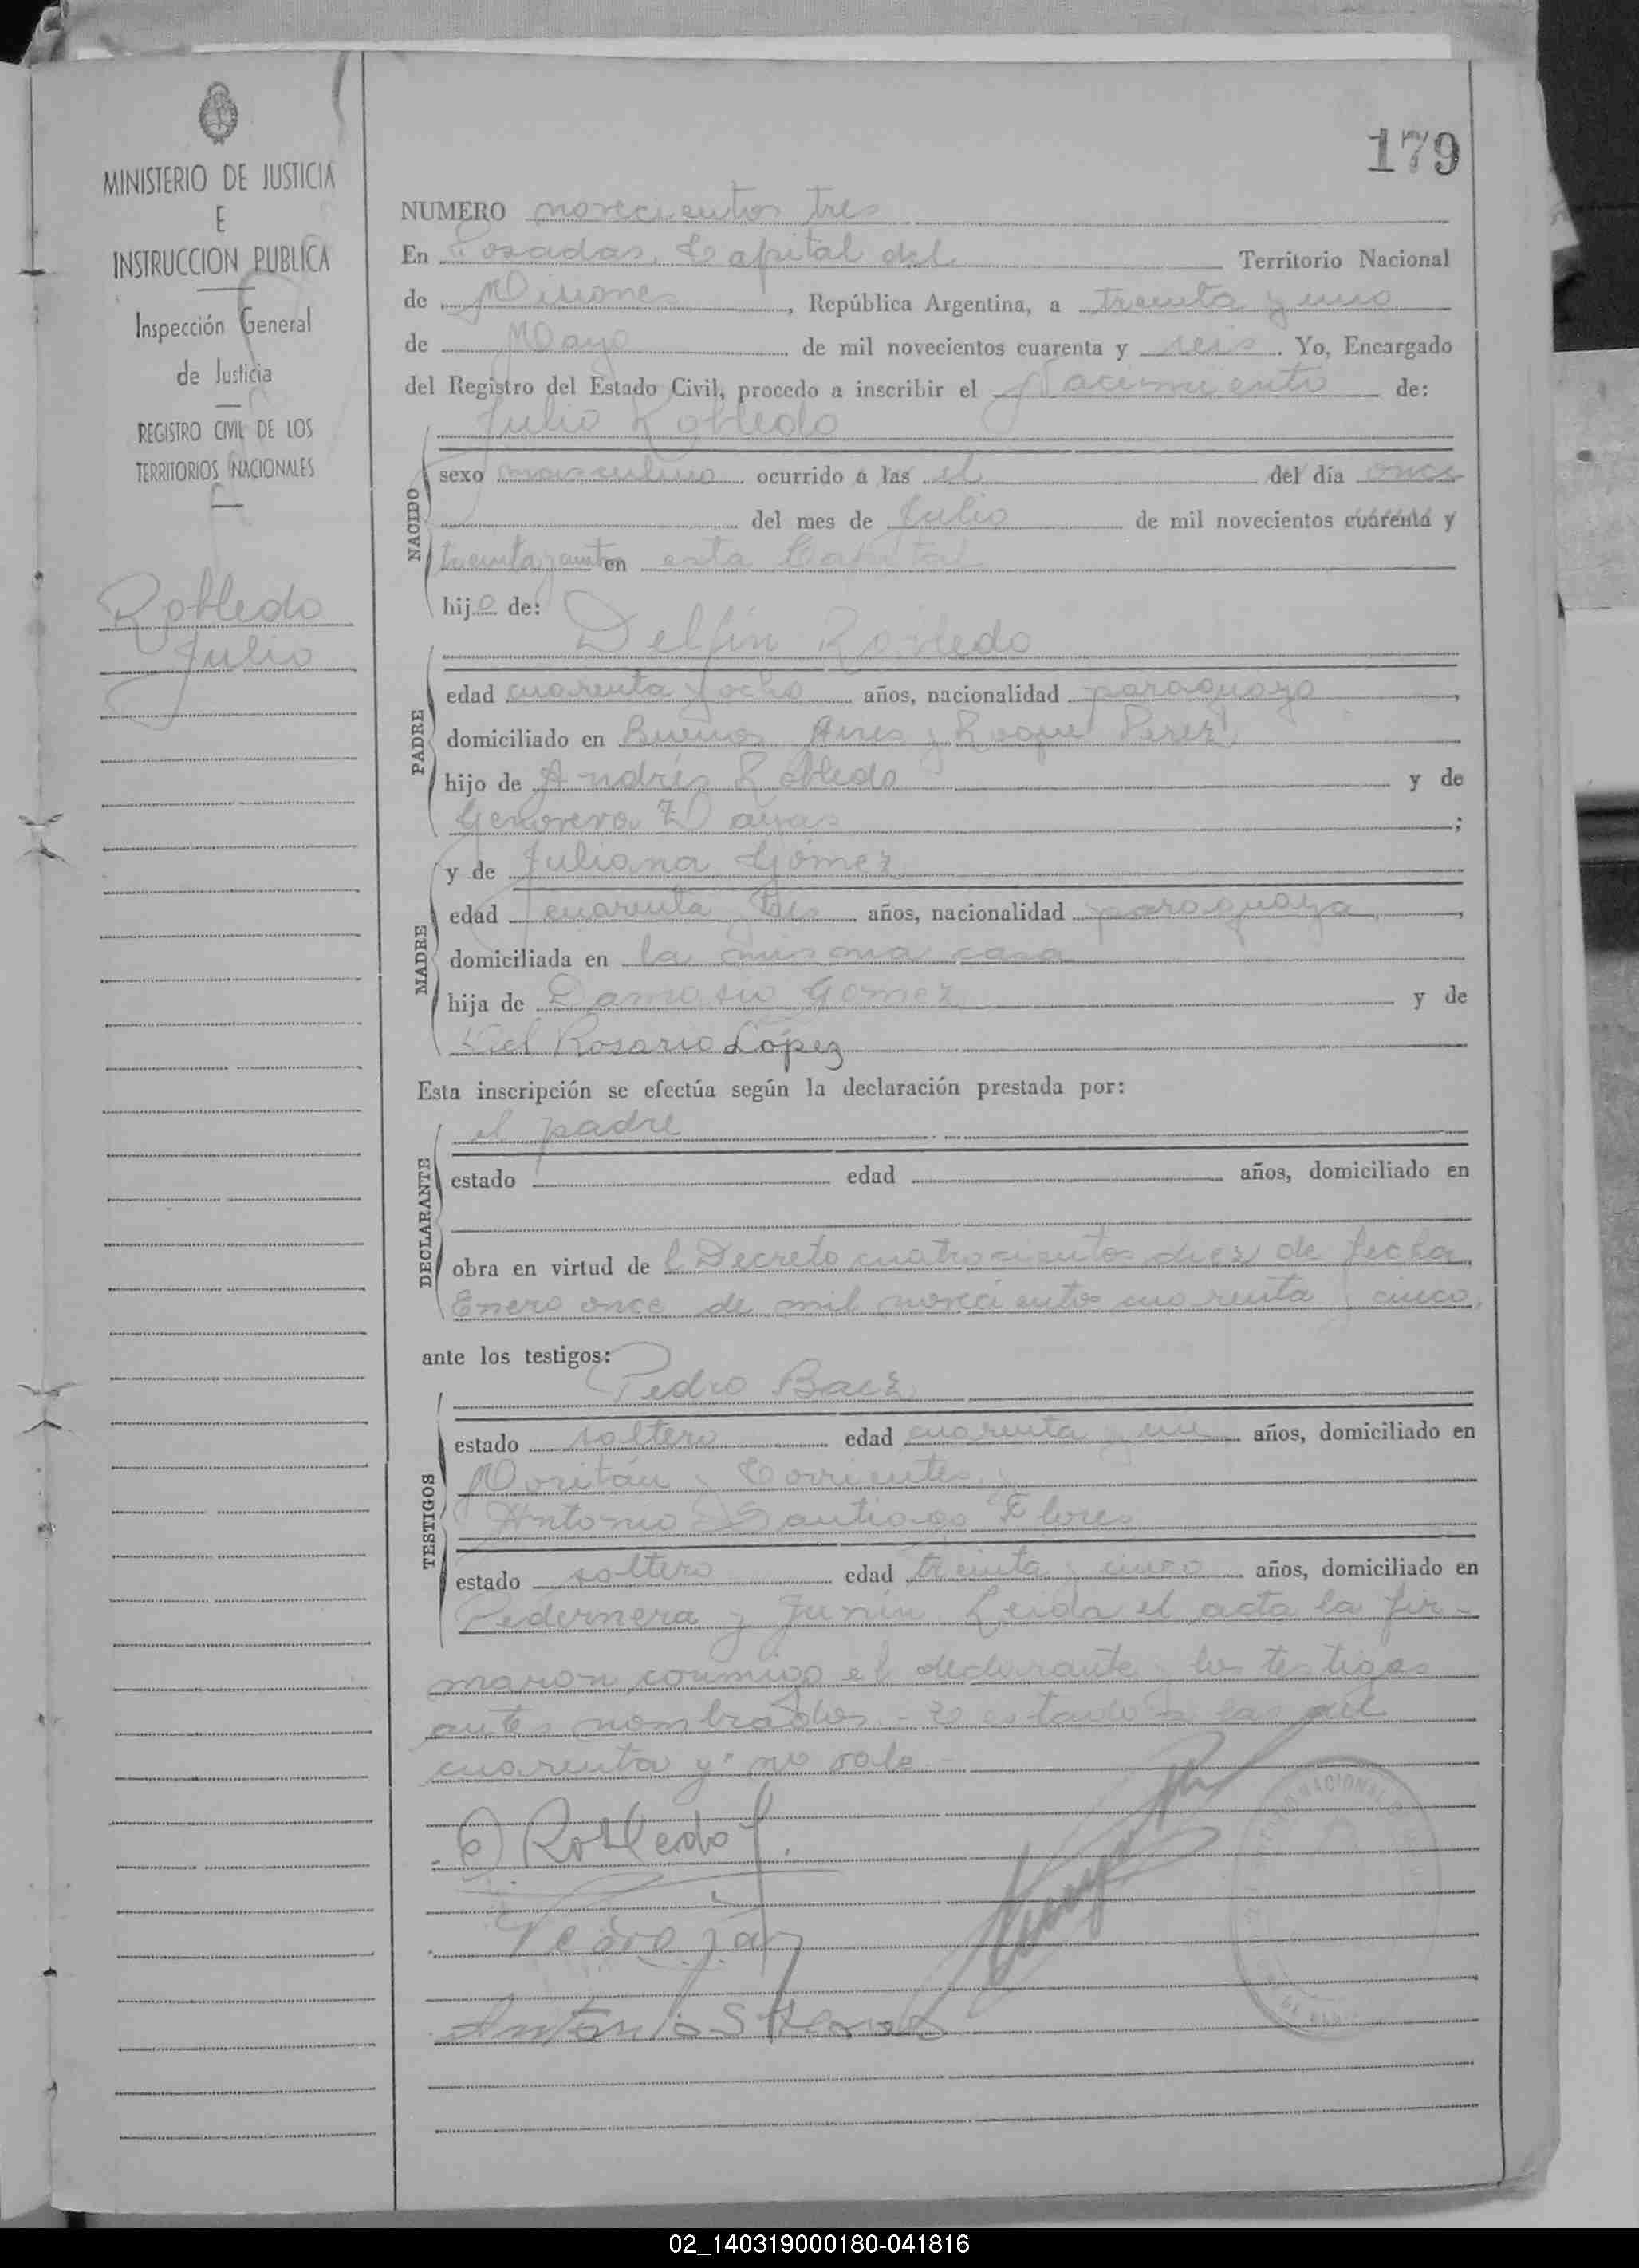 179
MINISTERIO DE JUSTICIA
E
INSTRUCCION PUBLICA
Inspección General
de Justicia
REGISTRO CIVIL DE LOS
TERRITORIOS NACIONALES
Robledo
Julio
NUMERO novecientos tres
En Posadas, Capital del Territorio Nacional
de Misiones, República Argentina, a treinta y uno
de Mayo de mil novecientos cuarenta y seis. Yo, Encargado
del Registro del Estado Civil, procedo a inscribir el Nacimiento de:
Julio Robledo
NACIDO
sexo masculino ocurrido a las el del día once
del mes de Julio de mil novecientos cuarenta y
treinta en esta Capital
hijo de:
Delfín Robledo
PADRE
edad cuarenta y ocho años, nacionalidad paraguaya,
domiciliado en Buenos Aires y Roque Perez
hijo de Andrés Robledo y de
Genoveva ;
y de Juliana Gómez
MADRE
edad cuarenta años, nacionalidad paraguaya,
domiciliada en la misma casa
hija de Damasio Gomez y de
del Rosario López
Esta inscripción se efectúa según la declaración prestada por:
el padre
DECLARANTE
estado edad años, domiciliado en
obra en virtud de l Decreto cuatrocientos diez de fecha
Enero once de mil novecientos cuarenta y cinco,
ante los testigos:
Pedro Baez
TESTIGOS
estado soltero edad cuarenta y un años, domiciliado en
y Corrientes y
Antonio Santiago Flores
estado soltero edad treinta y cinco años, domiciliado en
Pedernera y Junín Leida el acta la fir-
maron conmigo el declarante y los testigos
antes nombrados.- Testado "a las
cuarenta y" no vale.-
Robledo
Antonio S Flores
02_140319000180-041816